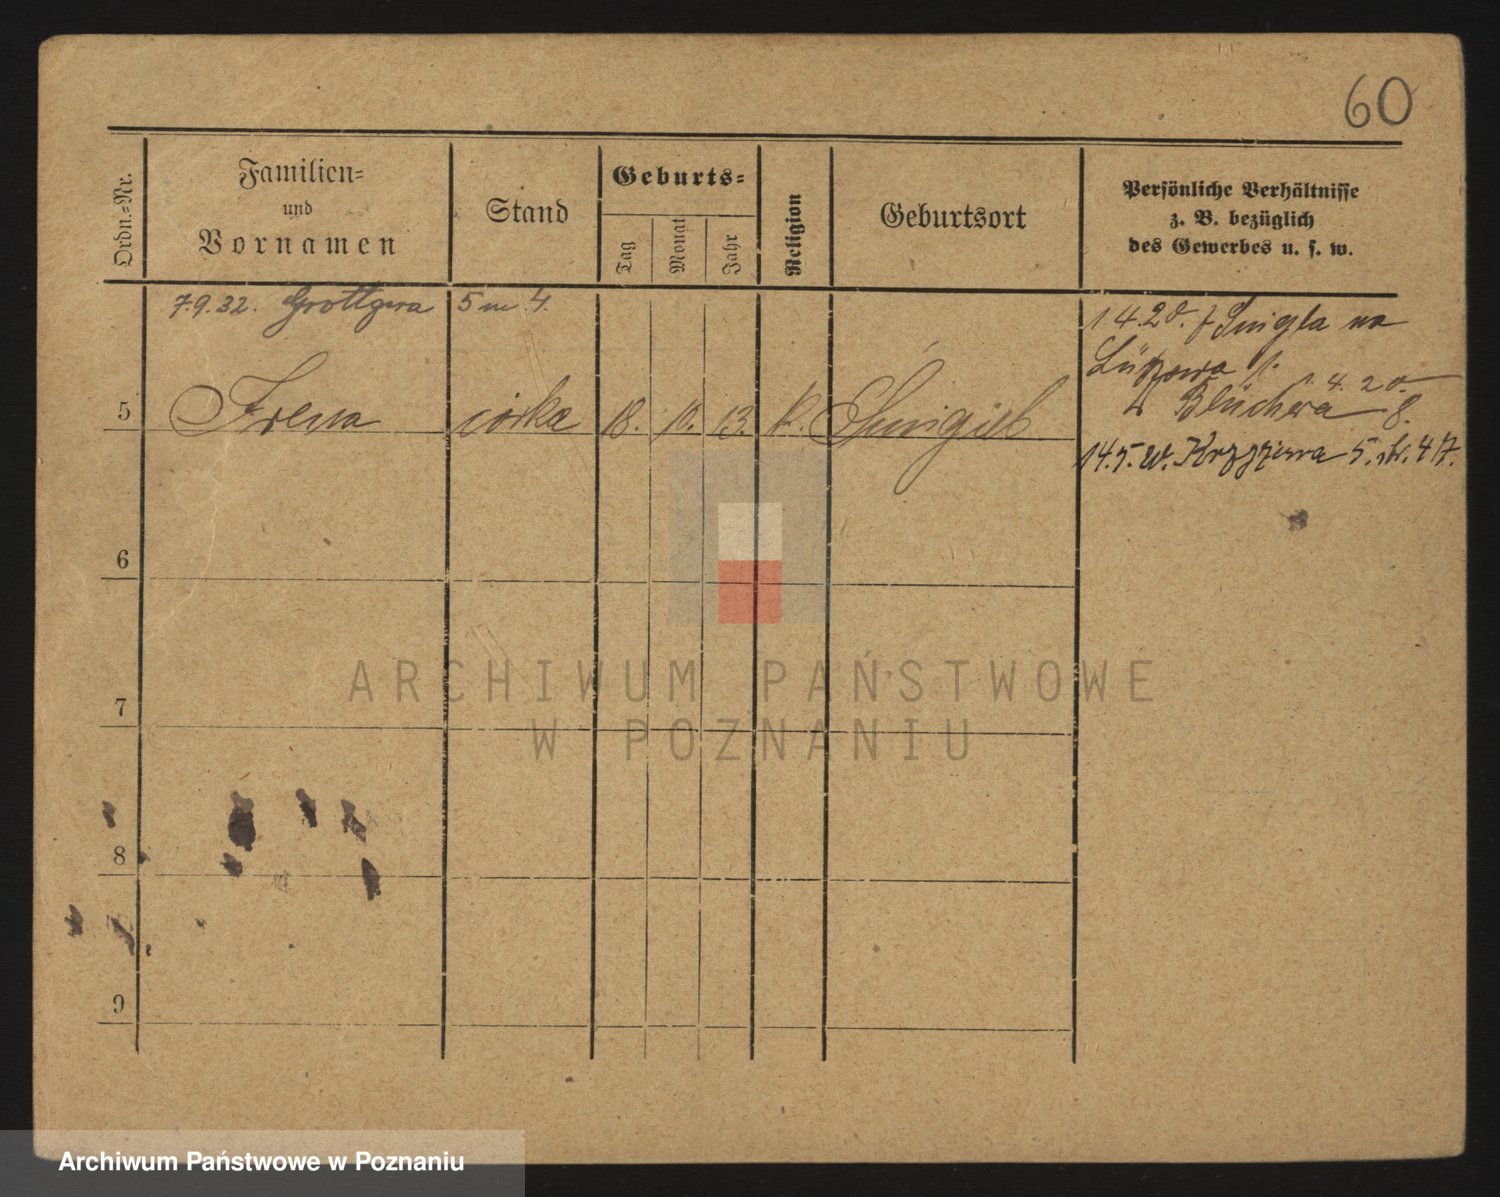 60
Ordn.=Nr.
Familien=
und
Vornamen
Stand
Geburts=
Tag
Monat
Jahr
Religion
Geburtsort
Persönliche Verhältnisse
z. B. bezüglich
des Gewerbes u. s. w.
7.9.32. Grottgera 5 m 4.
14.20. z Śmigla na
Lützowa
1.4.20
Blüchera 8.
5 Irena córka 18. 10. 13. k. Śmigiel
14.5.20. 5. 4
6
7
8
9
ARCHIWUM PAŃSTWOWE
W POZNANIU
Archiwum Państwowe w Poznaniu